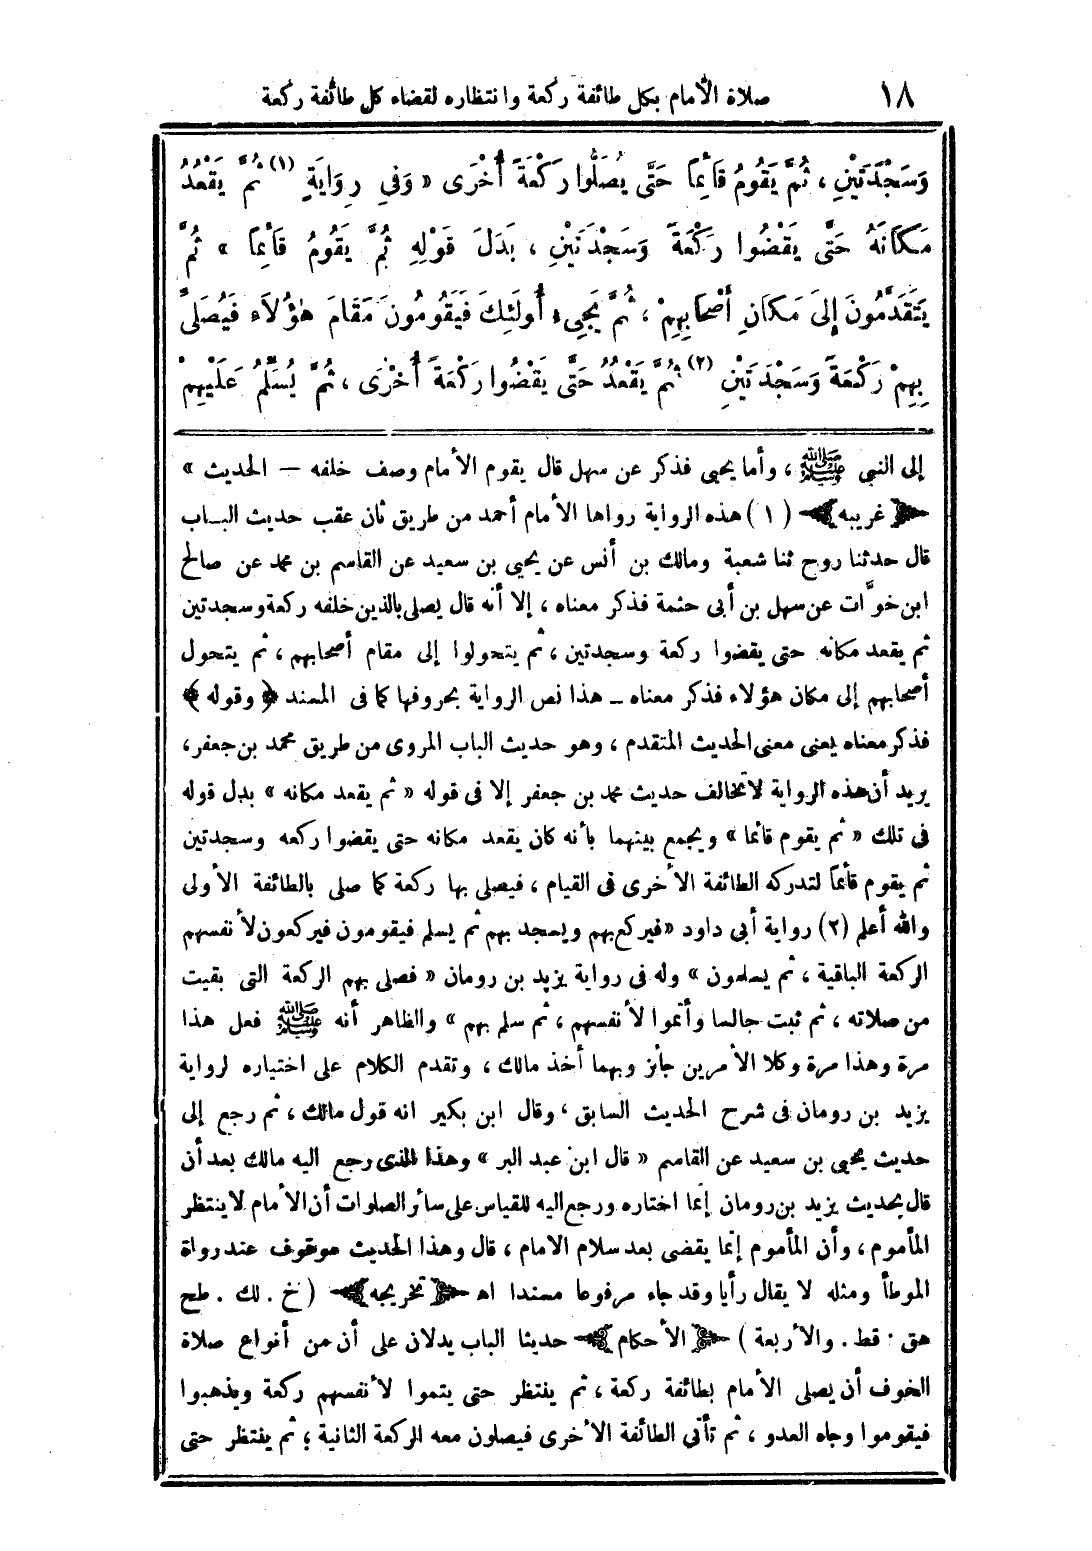 ١٨ صلاة الأمام بكل طائفة ركعة وانتظاره لقضاء كل طائفة ركعة
وَسَجْدَتَيْنِ ، ثُمَّ يَقُومُ قَائِمًا حَتَّى يُصَلُّوا رَكْعَةً أُخْرَى « وَفِي رِوَايَةٍ (١) ثُمَّ يَقْعُدُ
مَكَانَهُ حَتَّى يَقْضُوا رَكْعَةً وَسَجْدَتَيْنِ ، بَدَلَ قَوْلِهِ ثُمَّ يَقُومُ قَائِمًا » ثُمَّ
يَتَقَدَّمُونَ إِلَى مَكَانِ أَصْحَابِهِمْ ، ثُمَّ يَجِيءُ أُولَئِكَ فَيَقُومُونَ مَقَامَ هٰؤُلَاءِ فَيُصَلِّي
بِهِمْ رَكْعَةً وَسَجْدَتَيْنِ (٢) ثُمَّ يَقْعُدُ حَتَّى يَقْضُوا رَكْعَةً أُخْرَى ، ثُمَّ يُسَلِّمُ عَلَيْهِمْ
إلى النبي ﷺ ، وأما يحيى فذكر عن سهل قال يقوم الأمام وصف خلفه — الحديث »
﴿ غريبه ﴾ (١) هذه الرواية رواها الأمام أحمد من طريق ثان عقب حديث الباب
قال حدثنا روح ثنا شعبة ومالك بن أنس عن يحيى بن سعيد عن القاسم بن محمد عن صالح
ابن خوَّات عن سهل بن أبى حثمة فذكر معناه ، إلا أنه قال يصلى بالذين خلفه ركعة وسجدتين
ثم يقعد مكانه حتى يقضوا ركعة وسجدتين ، ثم يتحولوا إلى مقام أصحابهم ، ثم يتحول
أصحابهم إلى مكان هؤلاء فذكر معناه ـ هذا نص الرواية بحروفها كما فى المسند ﴿ وقوله ﴾
فذكر معناه يعنى معنى الحديث المتقدم ، وهو حديث الباب المروى من طريق محمد بن جعفر ،
يريد أن هذه الرواية لا تخالف حديث محمد بن جعفر إلا فى قوله « ثم يقعد مكانه » بدل قوله
فى تلك « ثم يقوم قائما » ويجمع بينهما بأنه كان يقعد مكانه حتى يقضوا ركعه وسجدتين
ثم يقوم قائمًا لتدركه الطائفة الأخرى فى القيام ، فيصلى بها ركعة كما صلى بالطائفة الأولى
والله أعلم (٢) رواية أبى داود « فيركع بهم ويسجد بهم ثم يسلم فيقومون فيركعون لأنفسهم
الركعة الباقية ، ثم يسلمون » وله فى رواية يزيد بن رومان « فصلى بهم الركعة التى بقيت
من صلاته ، ثم ثبت جالسا وأتموا لأنفسهم ، ثم سلم بهم » والظاهر أنه ﷺ فعل هذا
مرة وهذا مرة وكلا الأمرين جائز وبهما أخذ مالك ، وتقدم الكلام على اختياره لرواية
يزيد بن رومان فى شرح الحديث السابق ، وقال ابن بكير انه قول مالك ، ثم رجع إلى
حديث يحيى بن سعيد عن القاسم « قال ابن عبد البر » وهذا الذى رجع اليه مالك بعد أن
قال بحديث يزيد بن رومان إنما اختاره ورجع اليه للقياس على سائر الصلوات أن الأمام لا ينتظر
المأموم ، وأن المأموم إنما يقضى بعد سلام الامام ، قال وهذا الحديث موقوف عند رواة
الموطأ ومثله لا يقال رأيا وقد جاء مرفوعا مسندا اهـ ﴿ تخريجه ﴾ ( خ . لك . طح
هق . قط . والأربعة ) ﴿ الأحكام ﴾ حديثا الباب يدلان على أن من أنواع صلاة
الخوف أن يصلى الأمام بطائفة ركعة ، ثم ينتظر حتى يتموا لأنفسهم ركعة ويذهبوا
فيقوموا وجاه العدو ، ثم تأتى الطائفة الأخرى فيصلون معه الركعة الثانية ؛ ثم ينتظر حتى